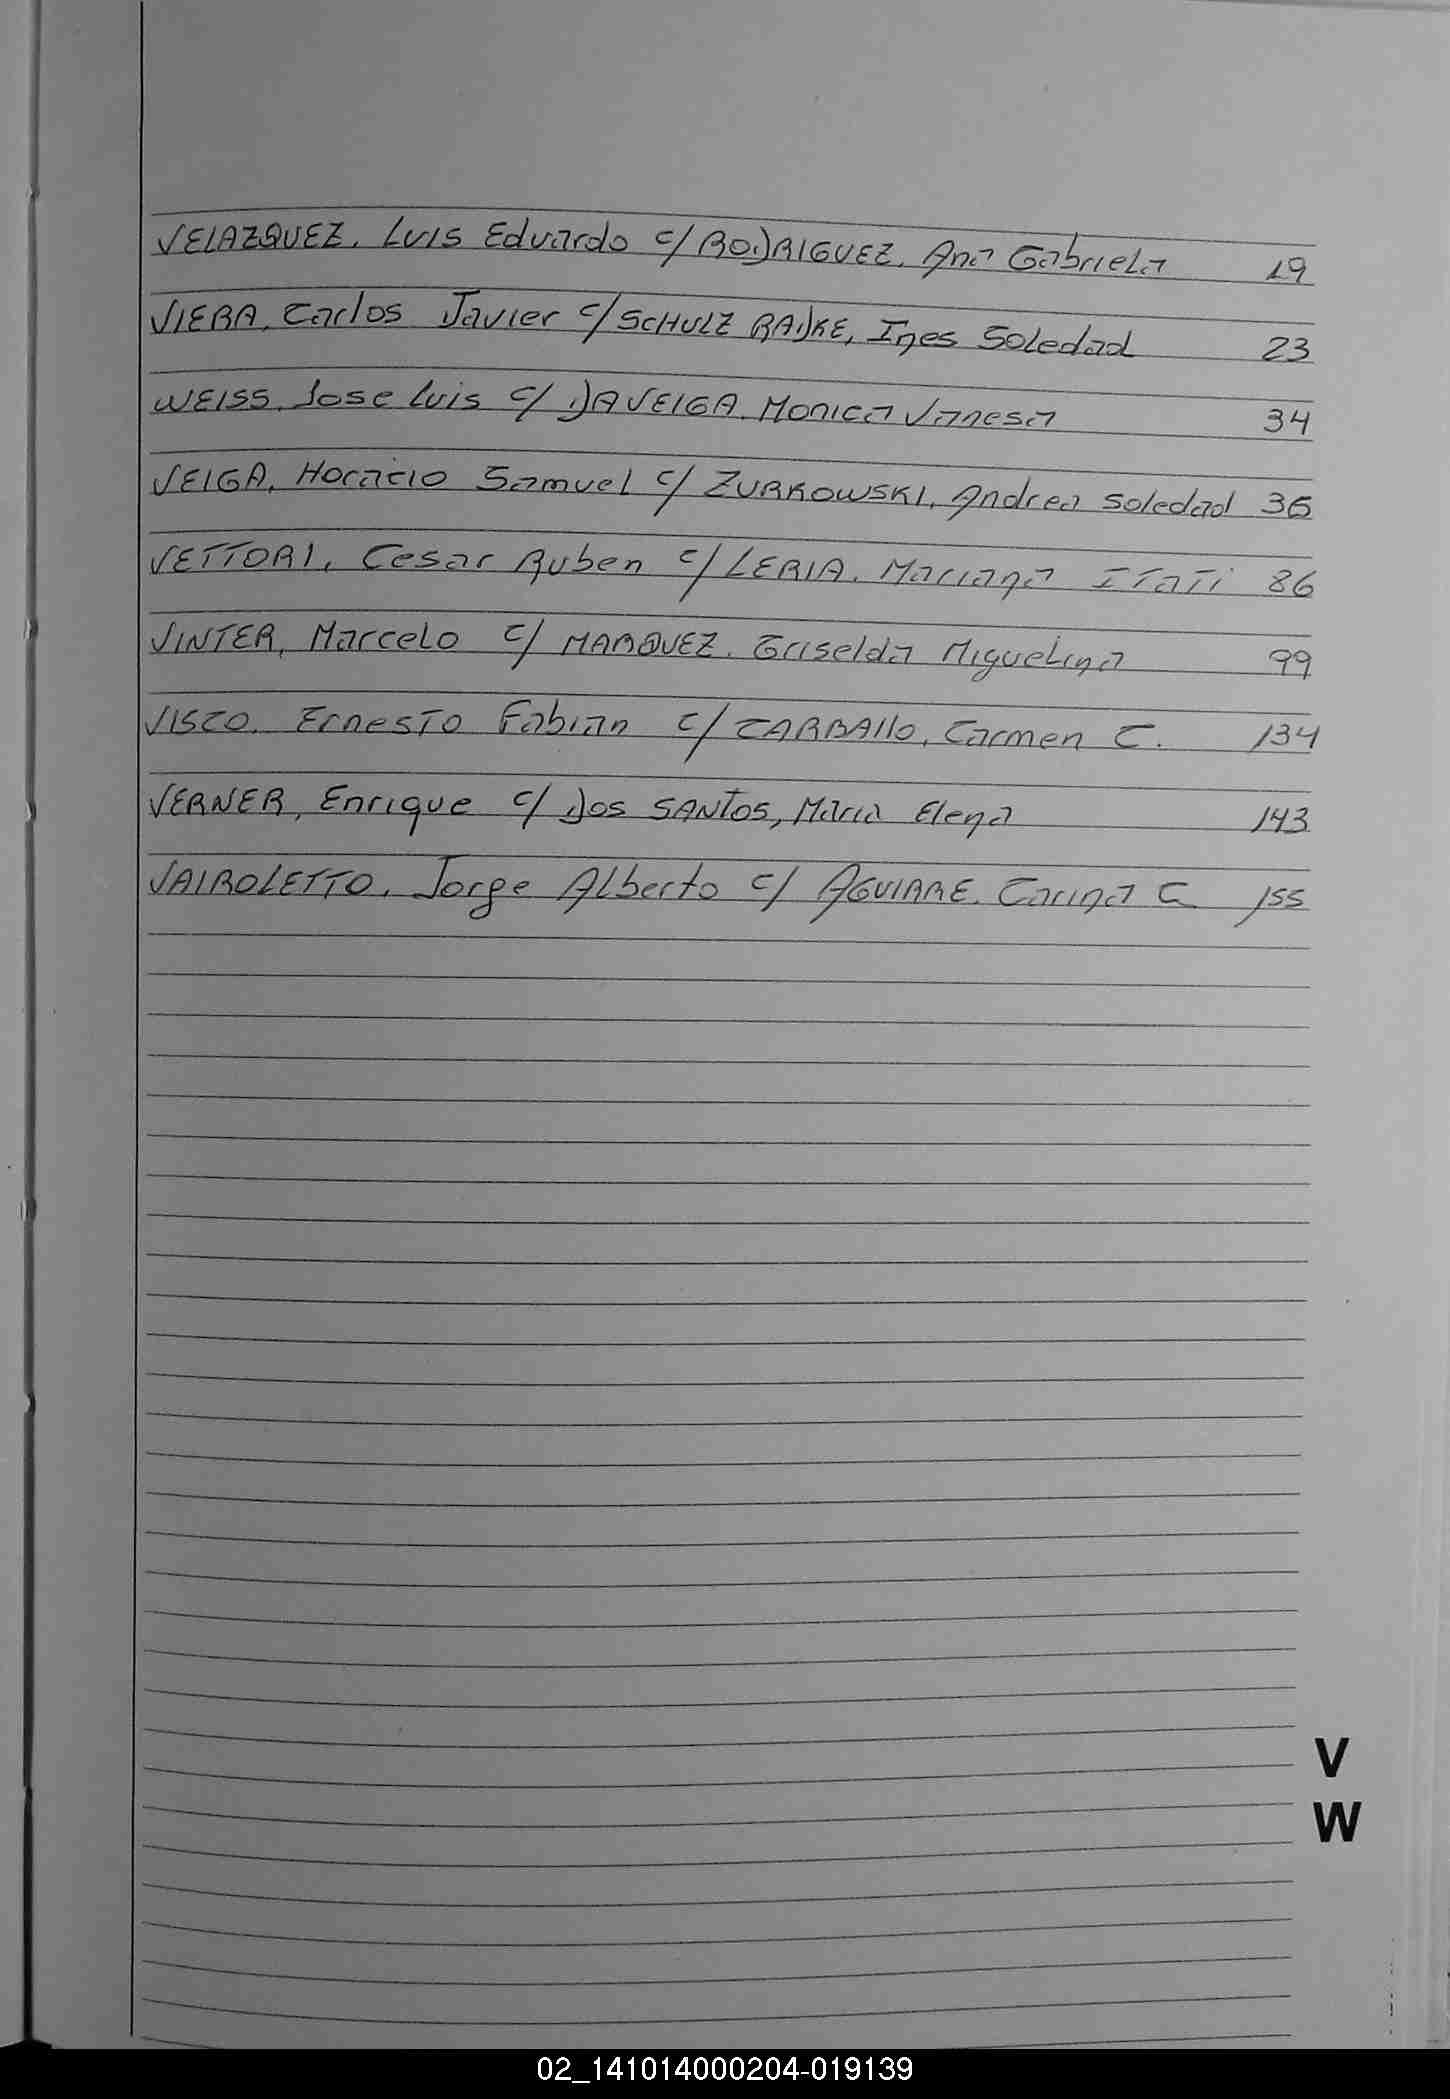 VELAZQUEZ, Luis Eduardo c/ RODRIGUEZ, Ana Gabriela 19
VIERA, Carlos Javier c/ SCHULZ RADKE, Ines Soledad 23
WEISS, Jose Luis c/ DAVEIGA, Monica Vanesa 34
VEIGA, Horacio Samuel c/ ZURKOWSKI, Andrea Soledad 36
VETTORI, Cesar Ruben c/ LERIA, Mariana ITATI 86
VINTER, Marcelo c/ MARQUEZ, Griselda Miguelina 99
VISCO, Ernesto Fabian c/ CARBALLO, Carmen C. 134
VERNER, Enrique c/ Dos SANTOS, Maria Elena 143
VAIROLETTO, Jorge Alberto c/ AGUIRRE, Carina G 155
V
W
02_141014000204-019139